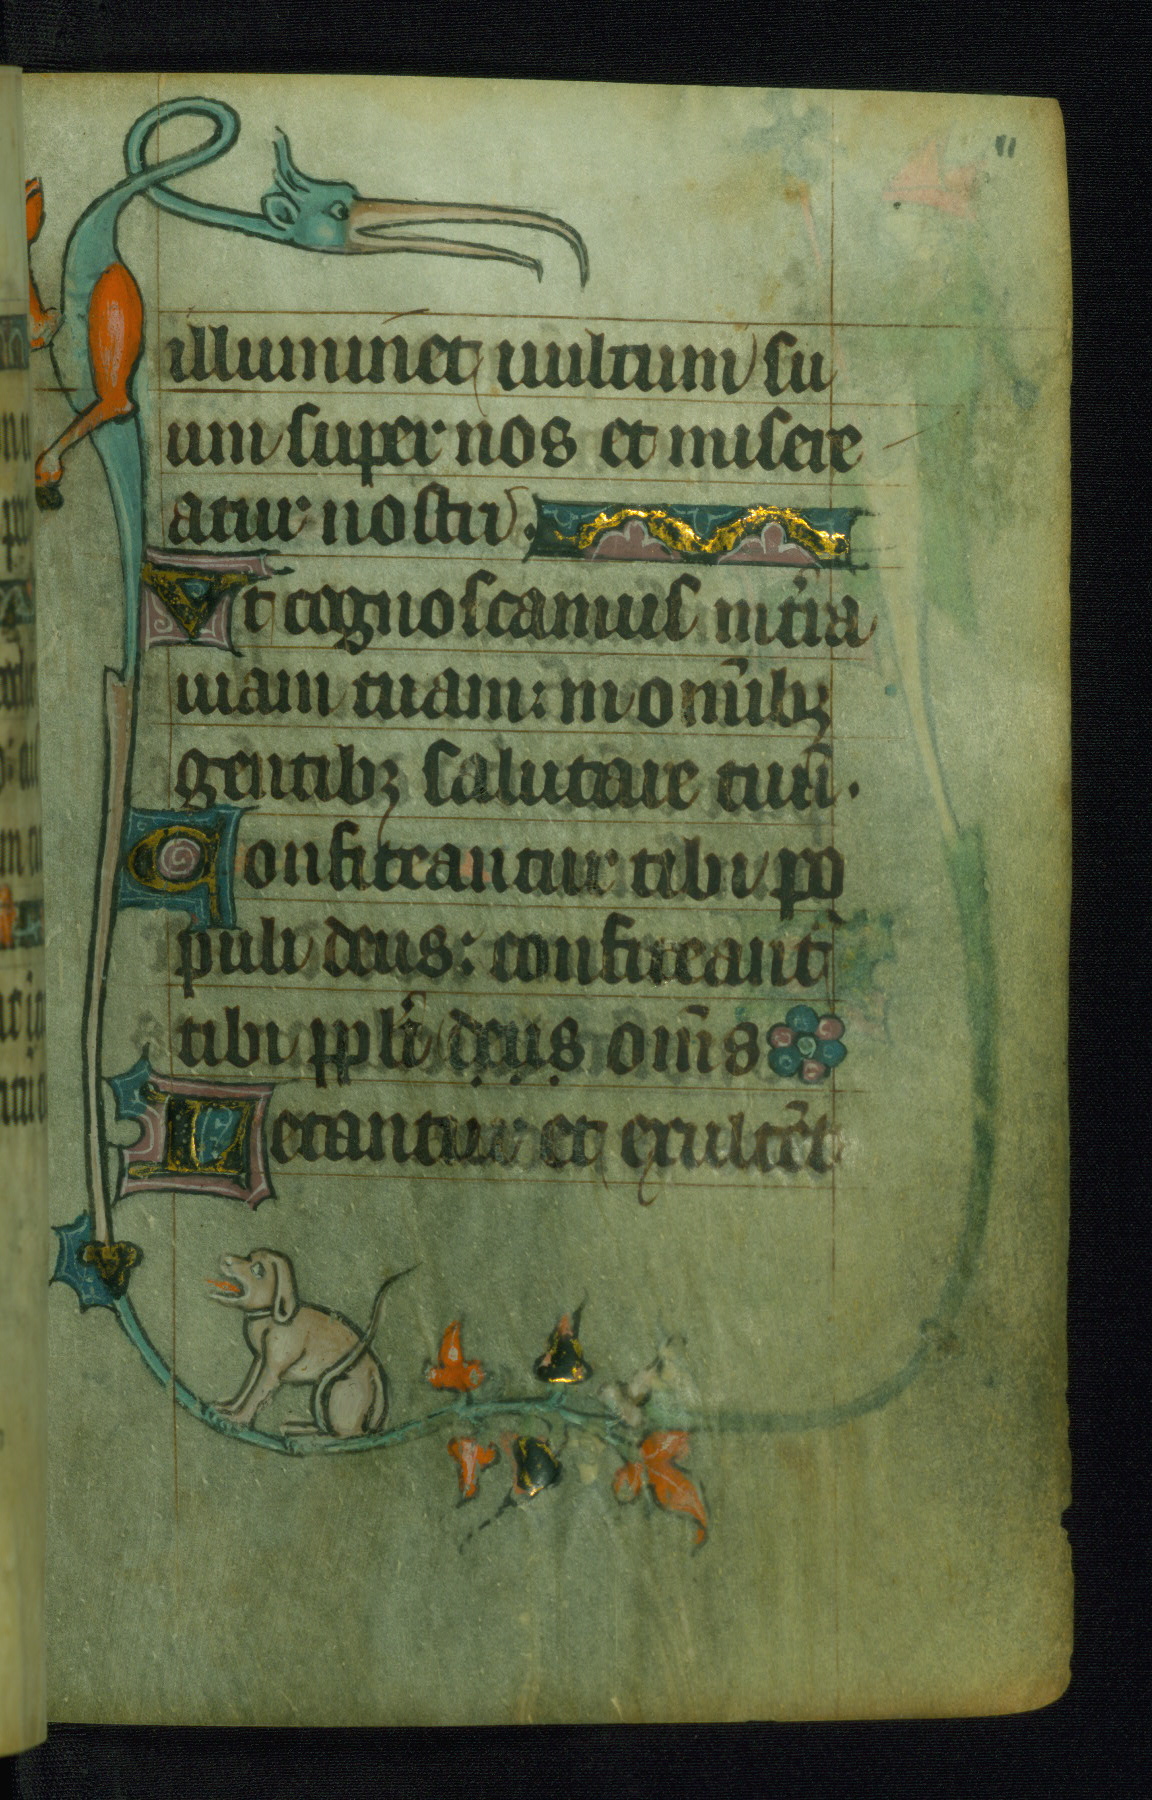 11
illuminet uultum su
um super nos et misere
atur nostri.
Vt cognoscamus in t̄ra
uiam tuam: in om̄ibꝫ
gentibꝫ salutare tuū.
Confiteantur tibi po
puli deus: confiteant̄
tibi ppl̄i deus om̄s
Letantur et exultēt